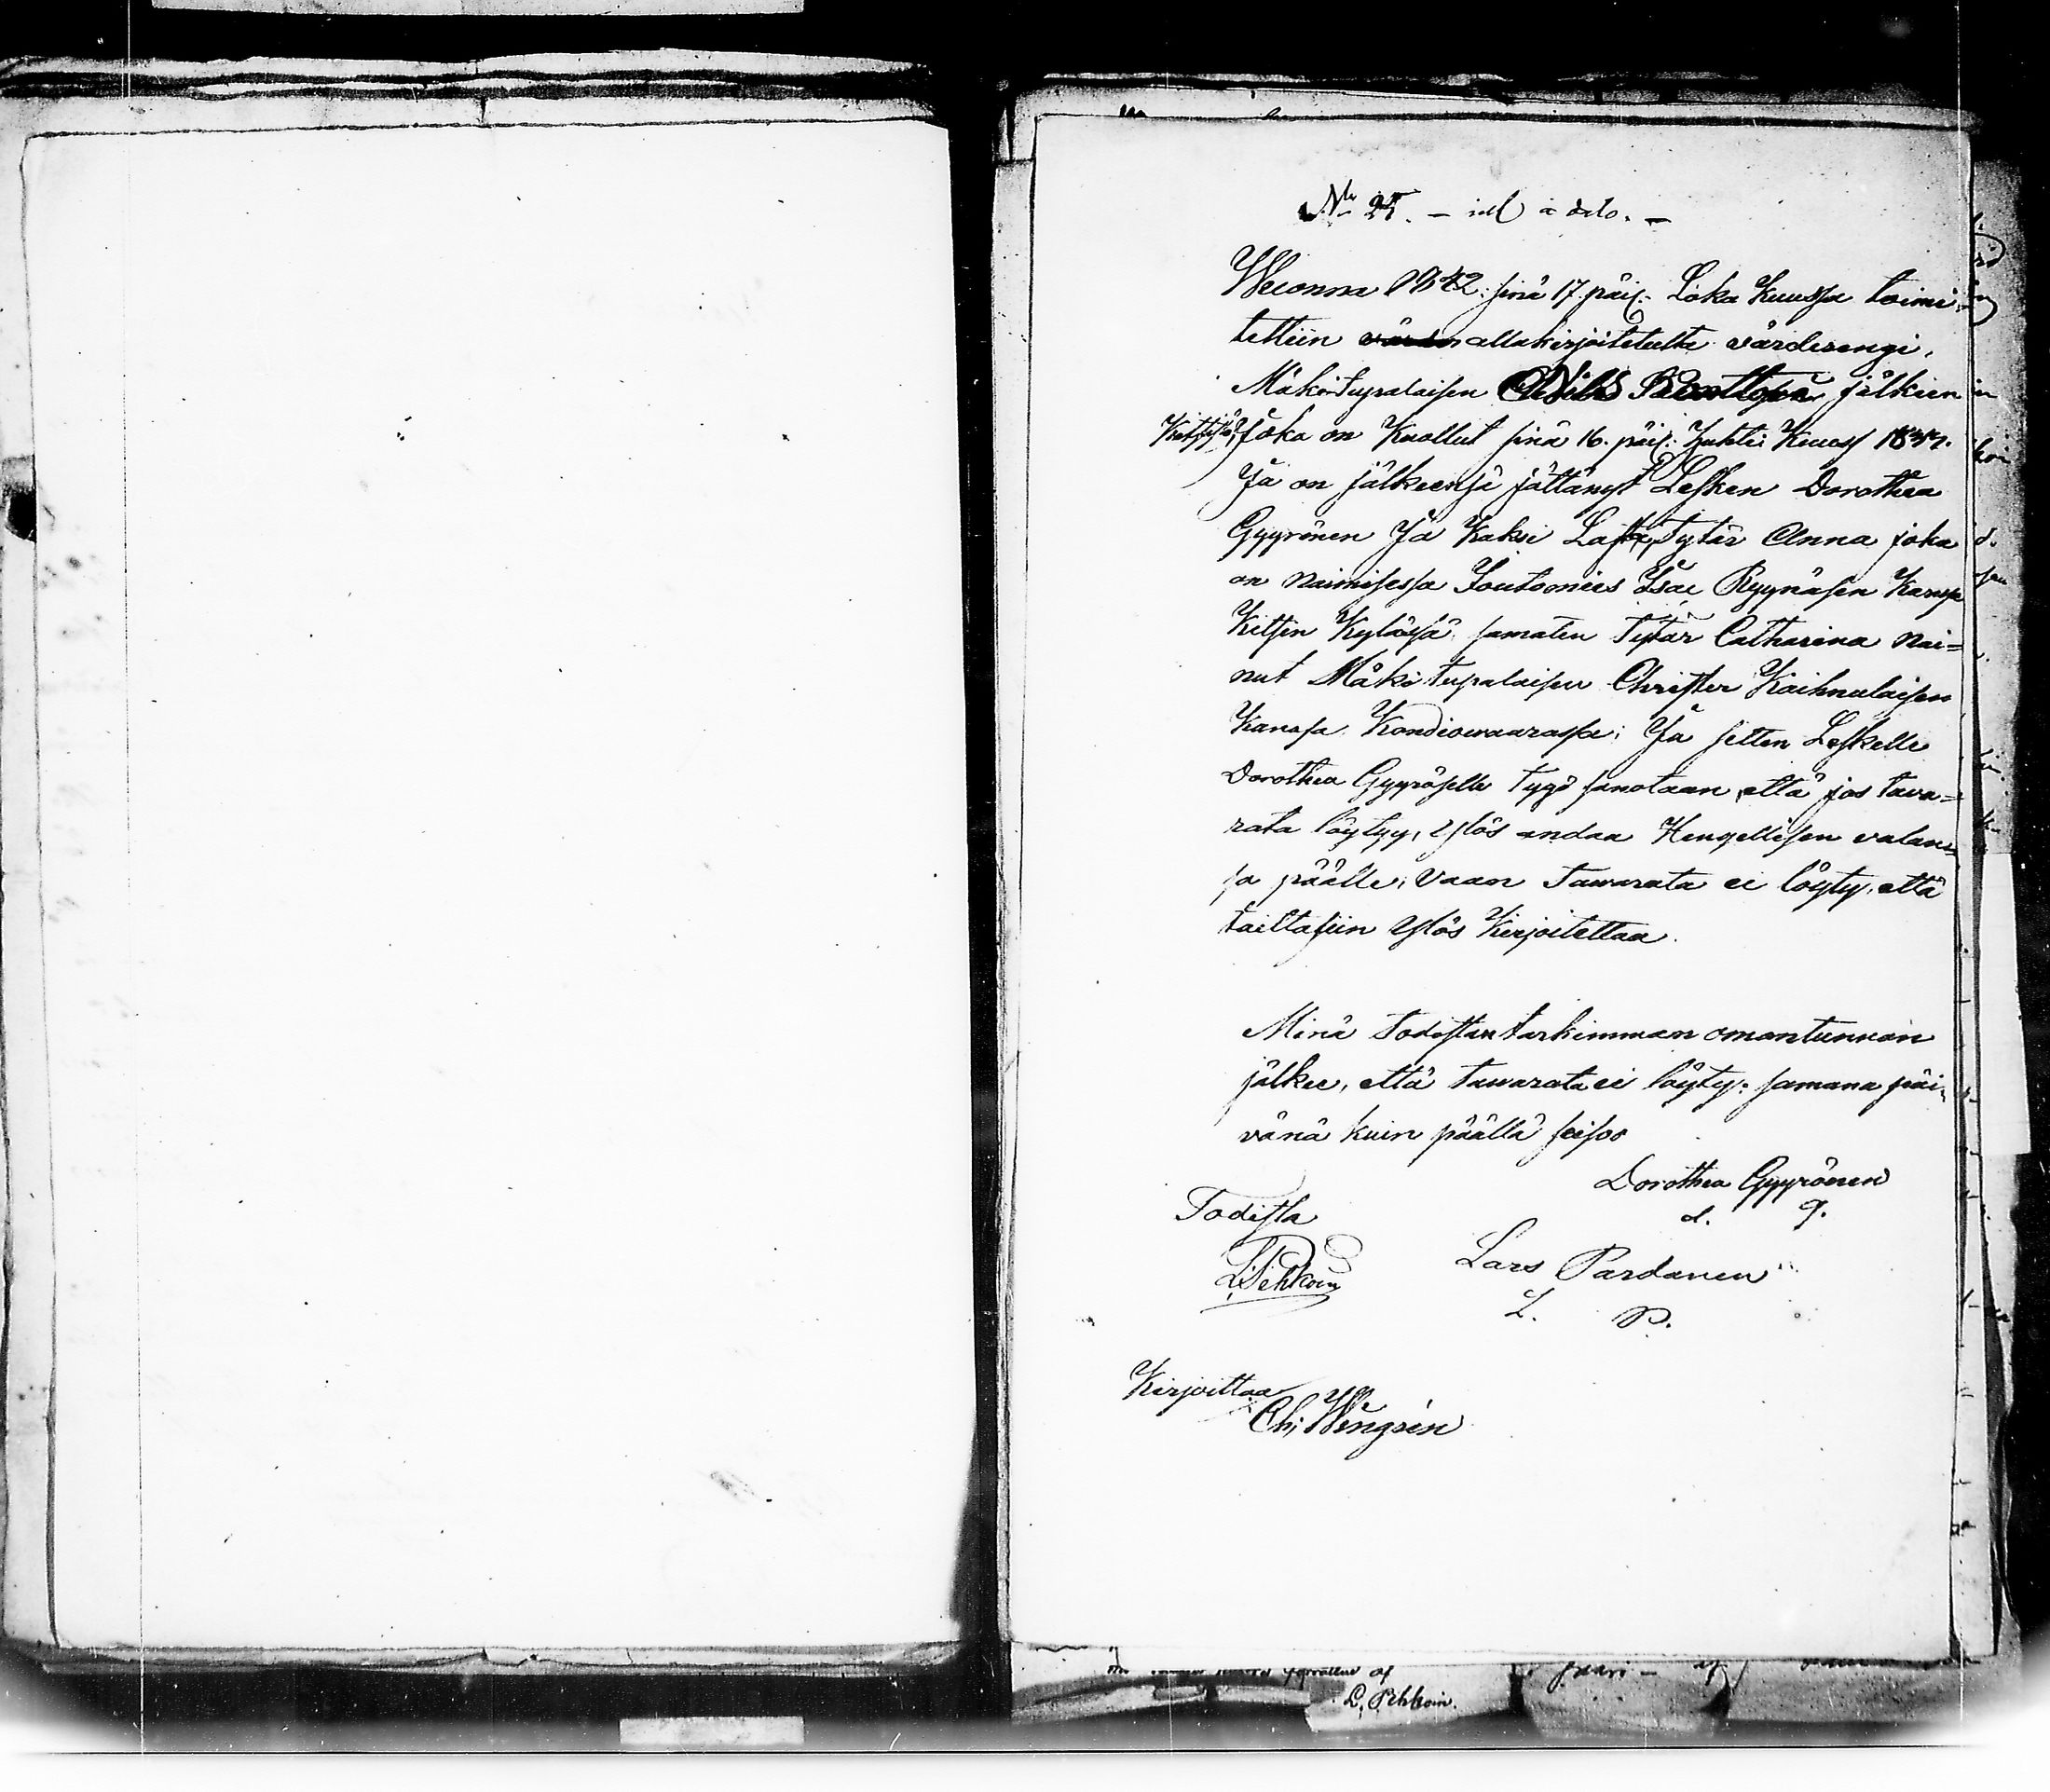 No 25. – inl à dato. –
Wuonna 1842: sinä 17. päiv. Loka Kuussa toimi-
tettiin allakirjoitetulta värderengi,
Mäkitupalaisen jälkeen
joka on Kuollut sinä 16. päiv. Huhti Kuus
Ja on jälkeensä jättänyt Lesken Dorothea
Gyyrönen Ja Kaksi Lasta, Tytär Anna joka
on naimisessa Joutomies Isac Ryynäsen Kanssa
Kitsin Kylässä, samaten Tytär Catharina nai=
nut Mäkitupalaisen Christer Kaihnulaisen
Kanssa Kondiovaarassa; Ja sitten Leskelle
Dorothea Gyyröselle tygö sanotaan, että jos tava=
rata löytyy, Ylös andaa Hengellisen valan=
sa päälle, vaan Tawarata ei löyty, että
taittasiin Ylös Kirjoitettaa.
Minä Todistan tarkimman omantunnon
jälkee, että tawarata ei löyty: samana päi=
vänä kuin päällä seisoo
Dorothea Gyyrönen
d. g.
Todista
L. Pehkoin
Lars Pardanen
L. P.
Kirjoittaa
Ch; Wengrén
L. Pehkoin.